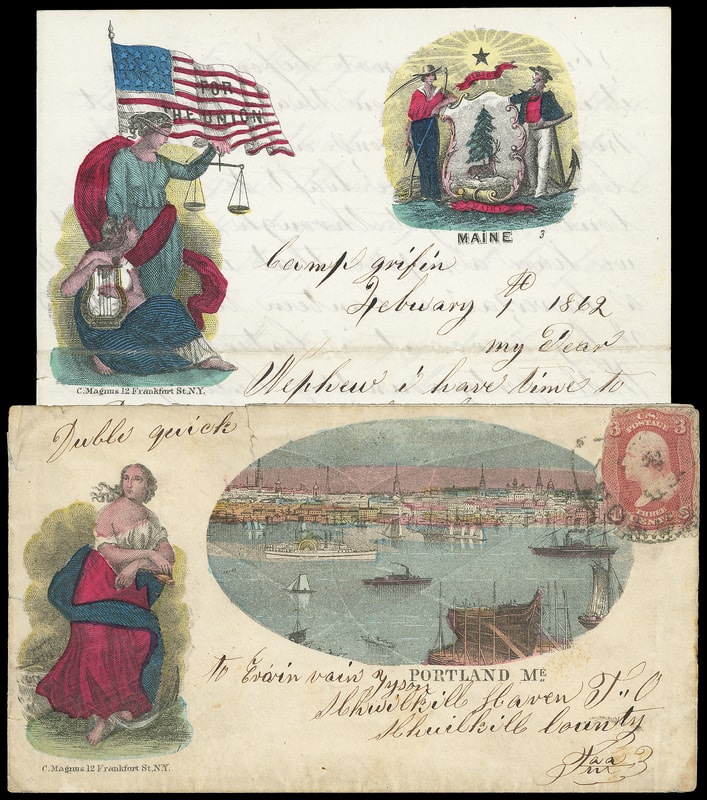 FOR
THE UNION
MAINE 3
Camp grifin
Febuary 7 1862
my Dear
Nephew i have time to
C. Magnus 12 Frankfort St. N.Y.
Duble quick
U.S.
POSTAGE
3 3
THREE
CENTS
PORTLAND ME.
to Ervin vain Tyson
Schuilkill Haven P.. O
Schuilkill County
C. Magnus 12 Frankfort St. N.Y.